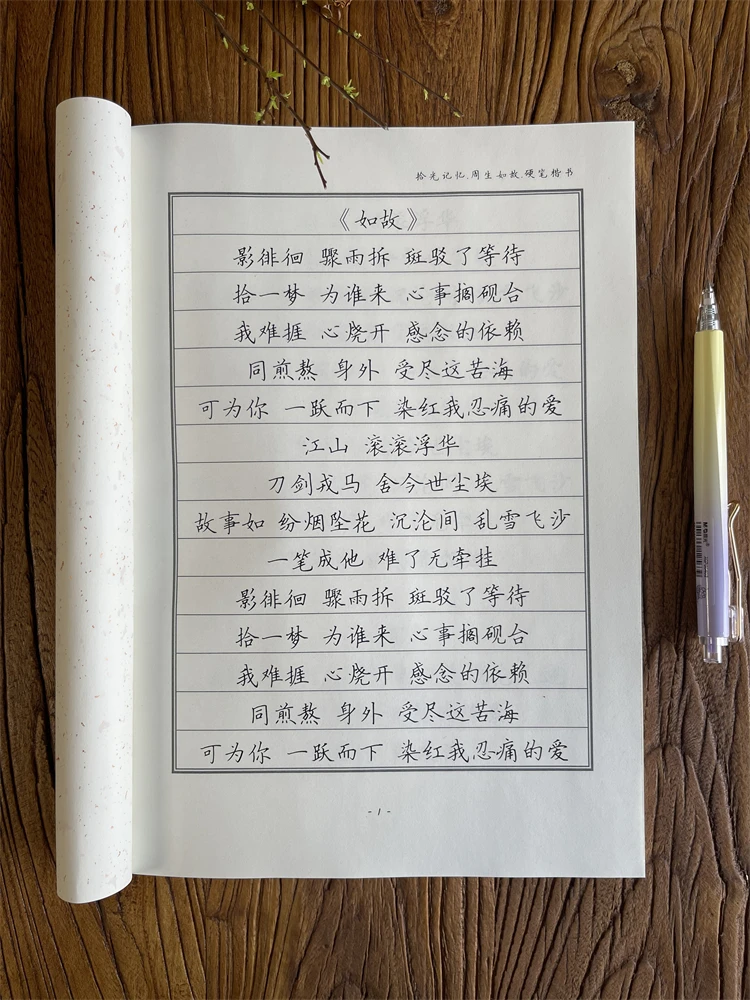 拾光记忆.周生如故.硬笔楷书
《如故》
影徘徊 骤雨拆 斑驳了等待
拾一梦 为谁来 心事搁砚台
我难捱 心烧开 感念的依赖
同煎熬 身外 受尽这苦海
可为你 一跃而下 染红我忍痛的爱
江山 滚滚浮华
刀剑戎马 舍今世尘埃
故事如 纷烟坠花 沉沦间 乱雪飞沙
一笔成他 难了无牵挂
影徘徊 骤雨拆 斑驳了等待
拾一梦 为谁来 心事搁砚台
我难捱 心烧开 感念的依赖
同煎熬 身外 受尽这苦海
可为你 一跃而下 染红我忍痛的爱
- 1 -
M&G